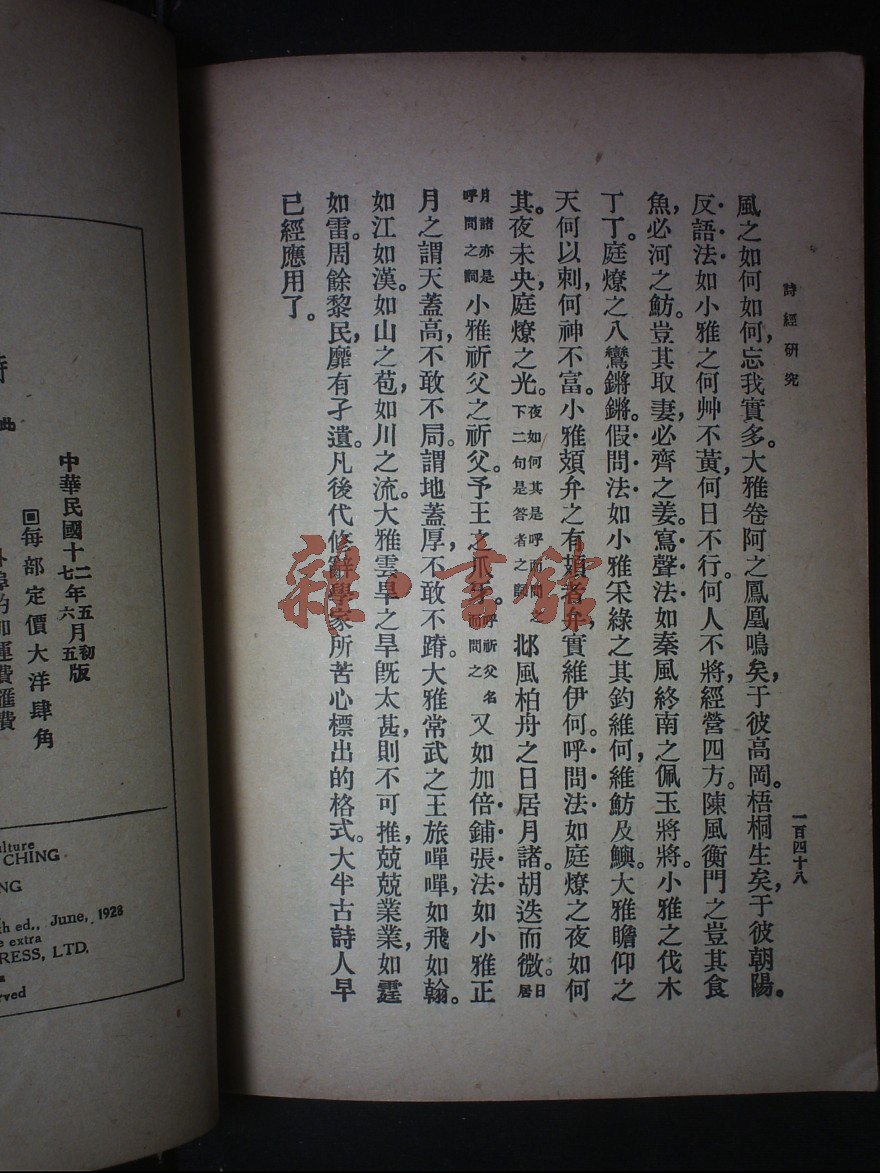 詩經研究
一百四十八
風之如何如何，忘我實多。大雅卷阿之鳳凰鳴矣，于彼高岡。梧桐生矣，于彼朝陽。
反語法如小雅之何艸不黃，何日不行。何人不將，經營四方。陳風衡門之豈其食
魚，必河之魴。豈其取妻，必齊之姜。寫聲法如秦風終南之佩玉將將。小雅之伐木
丁丁。庭燎之八鸞鏘鏘。假問法如小雅采綠之其釣維何，維魴及鱮。大雅瞻仰之
天何以刺，何神不富。小雅頍弁之有頍者弁，實維伊何。呼問法如庭燎之夜如何
其。夜未央，庭燎之光。夜如何其是呼而問之下二句是答者之詞 邶風柏舟之日居月諸。胡迭而微。日居
月諸亦是呼問之詞 小雅祈父之祈父。予王之爪牙。呼祈父名而問之 又如加倍鋪張法如小雅正
月之謂天蓋高，不敢不局。謂地蓋厚，不敢不蹐。大雅常武之王旅嘽嘽，如飛如翰。
如江如漢。如山之苞，如川之流。大雅雲旱之旱既太甚，則不可推，兢兢業業，如霆
如雷。周餘黎民，靡有孑遺。凡後代修辭學家所苦心標出的格式。大半古詩人早
已經應用了。
中華民國十二年五月初版
七年六月五版
回每部定價大洋肆角
外埠酌加運費匯費
CHING
June, 1928
extra
LTD.
雜·書館